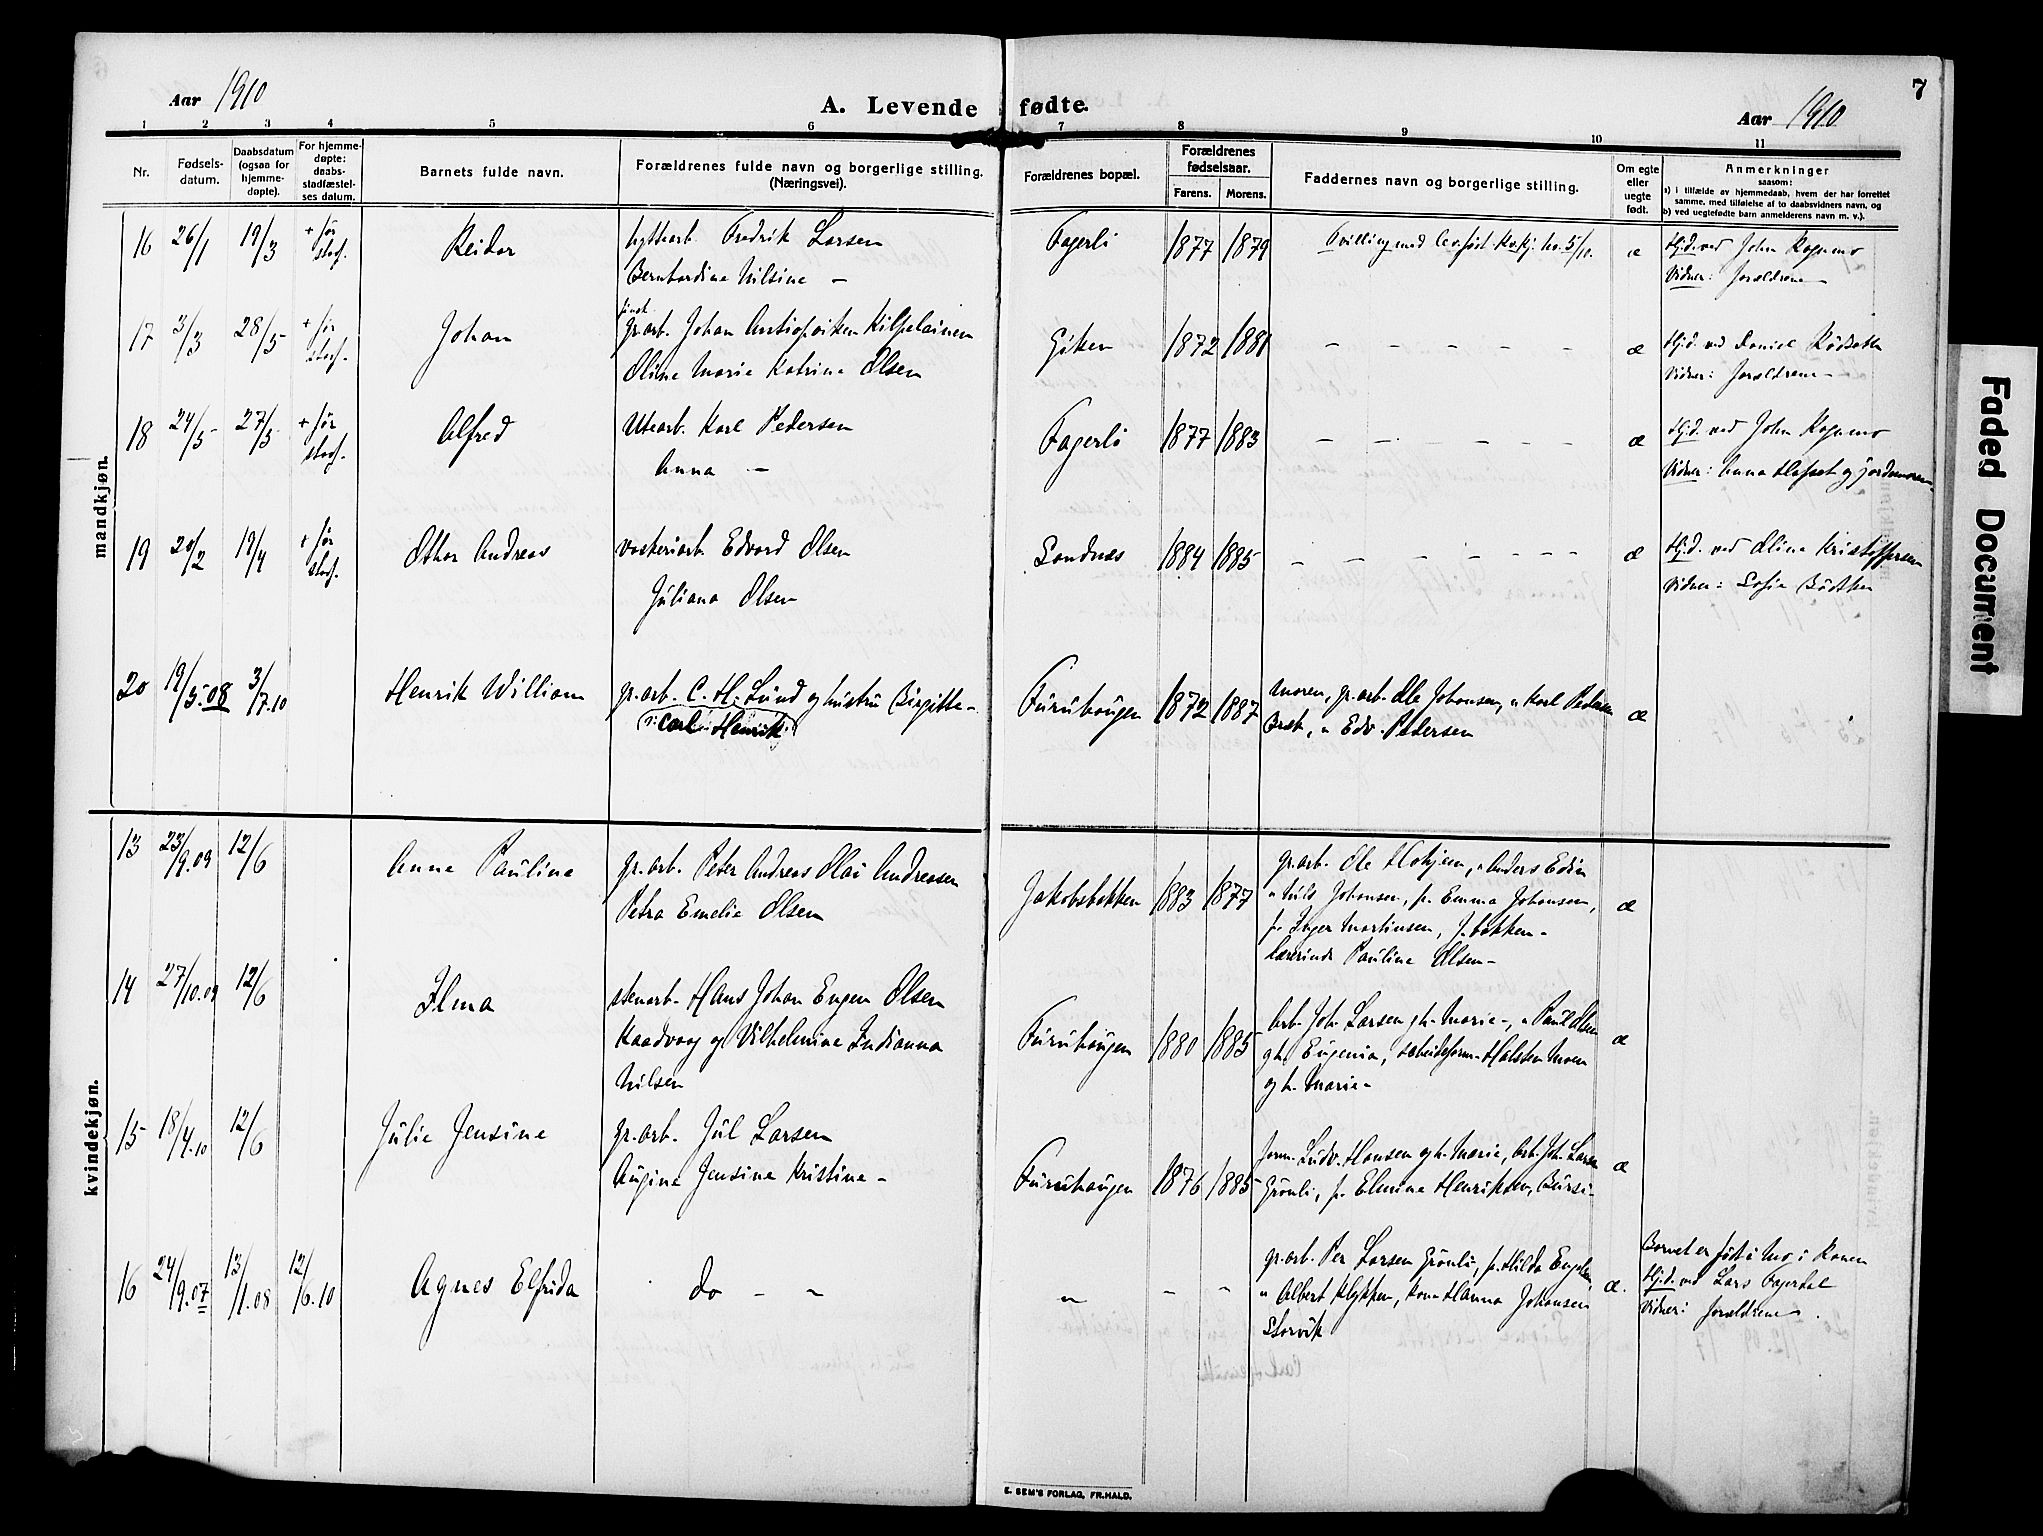 7
Aar 1910
A. Levende fødte.
Aar 1910
1 2 3 4 5 6 7 8 9 10 11
Nr.
Fødsels-
datum.
Daabsdatum
(ogsaa for
hjemme-
døpte).
For hjemme-
døpte:
daabs-
stadfæstel-
ses datum.
Barnets fulde navn.
Forældrenes fulde navn og borgerlige stilling.
(Næringsvei).
Forældrenes bopæl.
Forældrenes
fødselsaar.
Farens. Morens.
Faddernes navn og borgerlige stilling.
Om egte
eller
uegte
født.
Anmerkninger
saasom:
a) i tilfælde av hjemmedaab, hvem der har forrettet
samme, med tilføielse av to daabsvidners navn, og
b) ved uegtefødte barn anmelderens navn m. v.).
mandkjøn.
16 26/1 19/3 + før
stadf.
Reidar
hyttearb. Fredrik Larsen
Bernhardine Nilsine —
Fagerli 1877 1879
Tvilling med lev.født kv.kj. no. 5/10.
æ
Hj.d. ved John Rognmo
Vidner: forældrene
17 3/3 28/5 + før
stadf.
Johan
finsk
gr.arb. Johan Kilpelainen
Oline Marie Katrine Olsen
Giken 1872 1881 — — — — — æ
Hj.d. ved Daniel
Vidner: forældrene
18 24/5 27/5 + før
stadf.
Alfred
Utearb. Karl Pedersen
Anna —
Fagerli 1877 1883 — — — — — æ
Hj.d. ved John Rognmo
Vidner: Anna og jordmoren
19 20/2 19/4 + før
stadf.
Othar Andreas
vaskeriarb. Edvard Olsen
Juliana Olsen
Sandnes 1884 1885 — — — — — — æ
Hj.d. ved Oline Kristoffersen
Vidner: Sofie
20 19/5.08 3/7.10
Henrik William
gr.arb. C. H. Lund og hustru Birgitte —
(Carl Henrik)
Furuhaugen 1872 1887
Moren, gr.arb. Ole Johansen, " Karl Pedersen
" Edv. Petersen
æ
kvindekjøn.
13 23/9.09 12/6
Anna Pauline
gr.arb. Peter Andreas Olai Andreasen
Petra Emelie Olsen
Jakobsbakken 1883 1877
gr.arb. Ole " Anders Edin
" Nils Johansen, fr. Emma Johansen,
fr. Inger Martinsen, J.bakken —
lærerinde Pauline Olsen —
æ
14 27/10.09 12/6
Ilma
stenarb. Hans Johan Eugen Olsen
Kaadvaag og Vilhelmine Indianna
Nilsen
Furuhaugen 1880 1885
Arb. Joh. Larsen og h. Marie —, " Paul Olsen
og h. Eugenia, arbeidsform. Halsten Moen
og h. Marie —
æ
15 18/4.10 12/6
Julie Jensine
gr.arb. Jul Larsen
Augine Jensine Kristine —
Furuhaugen 1876 1885
form. Ludv. Hansen og h. Marie, arb. Joh. Larsen
Grönli, fr. Elmine Henriksen, Bursi —
æ
16 24/9.07 13/1.08 12/6.10
Agnes Elfrida
do — "
" — —
gr.arb. Per Larsen Grönli, fr. Hilda Engelsen
" Albert Klykken, kone Hanna Johansen
Storvik
æ.
Barnet er født i Mo i Ranen
Hj.d. ved Lars Fagerdal
Vidner: forældrene.
E. SEM'S FORLAG, FR.HALD.
Faded Document